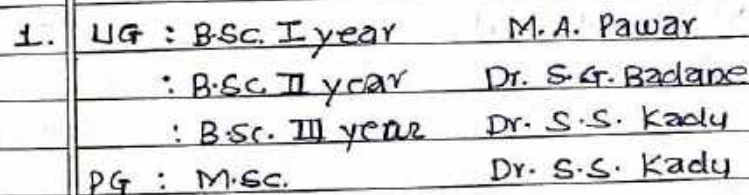 1. UG : B.Sc. I year M. A. Pawar
: B.Sc. II year Dr. S. G. Badane
: B.Sc. III year Dr. S. S. Kady
PG : M.Sc. Dr. S. S. Kady